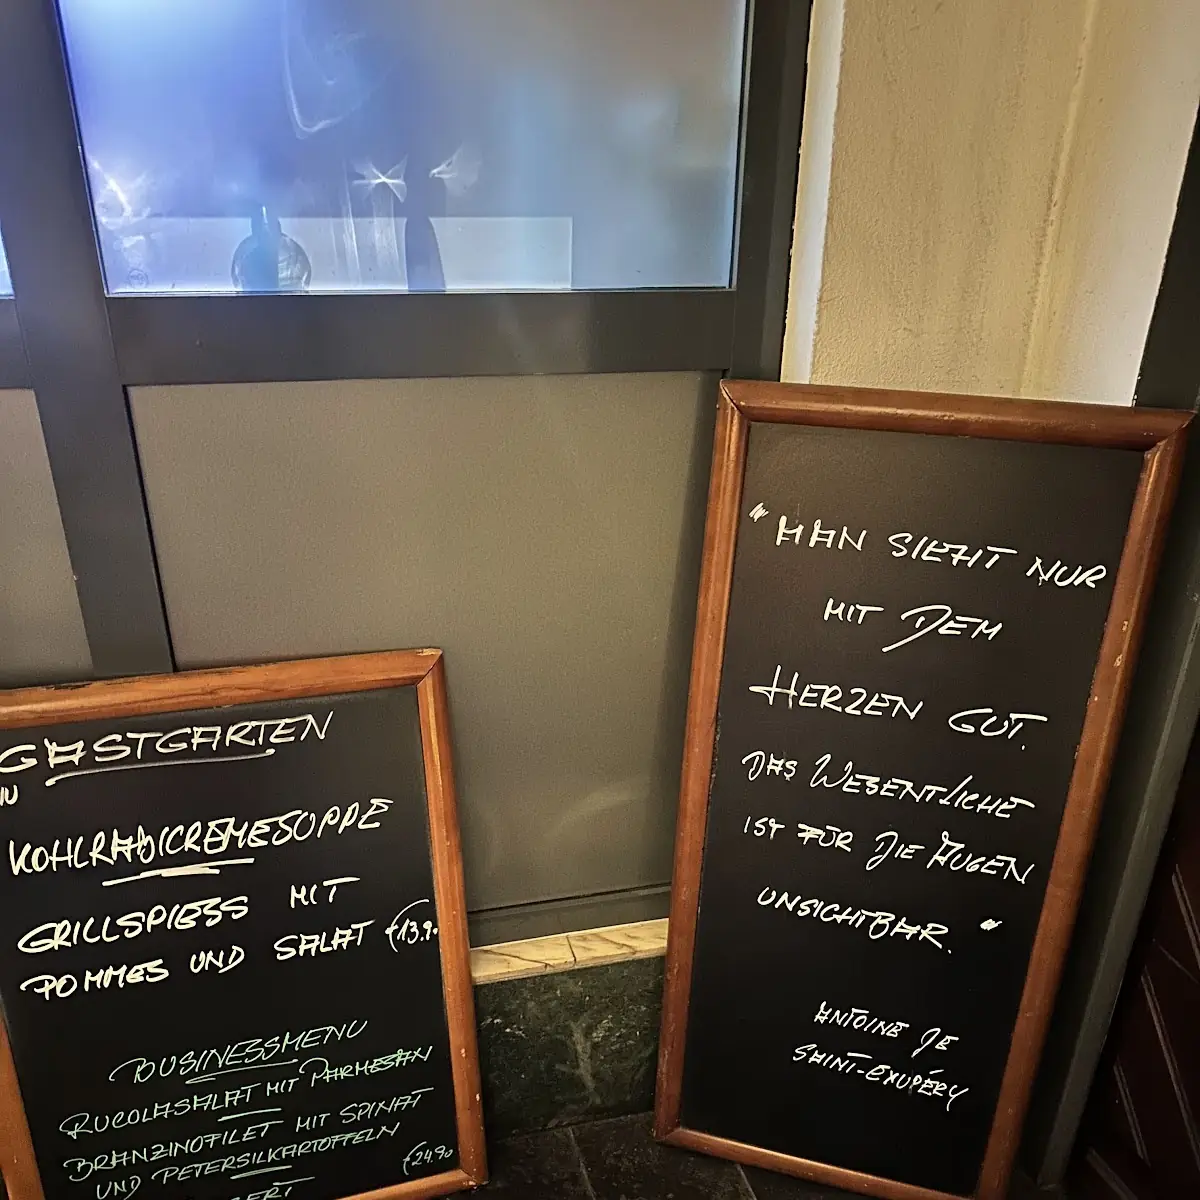 GASTGARTEN
KOHLRABICREMESUPPE
GRILLSPIESS MIT
POMMES UND SALAT €13.90
BUSINESSMENU
RUCOLASALAT MIT PARMESAN
BRANZINOFILET MIT SPINAT
UND PETERSILKARTOFFELN
€24.90
"MAN SIEHT NUR
MIT DEM
HERZEN GUT.
DAS WESENTLICHE
IST FÜR DIE AUGEN
UNSICHTBAR."
ANTOINE DE
SAINT-EXUPÉRY